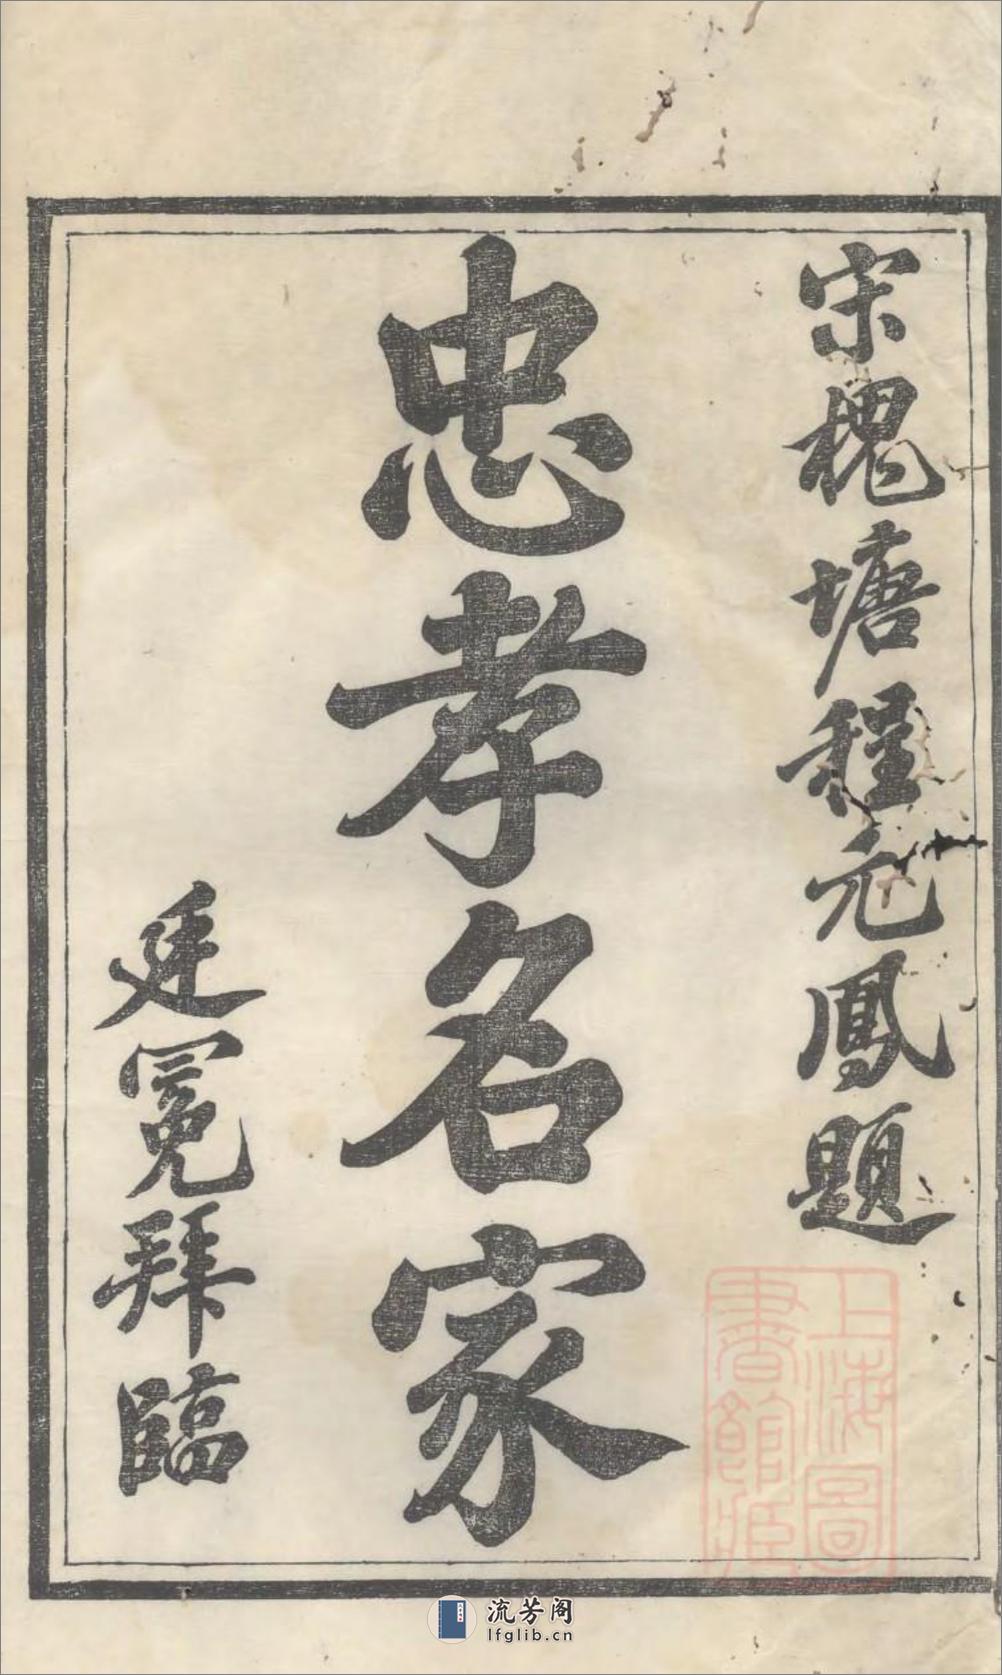 宋槐塘程元鳳題
忠孝名家
廷冕拜臨
上海圖
書館藏
流芳阁
lfglib.cn